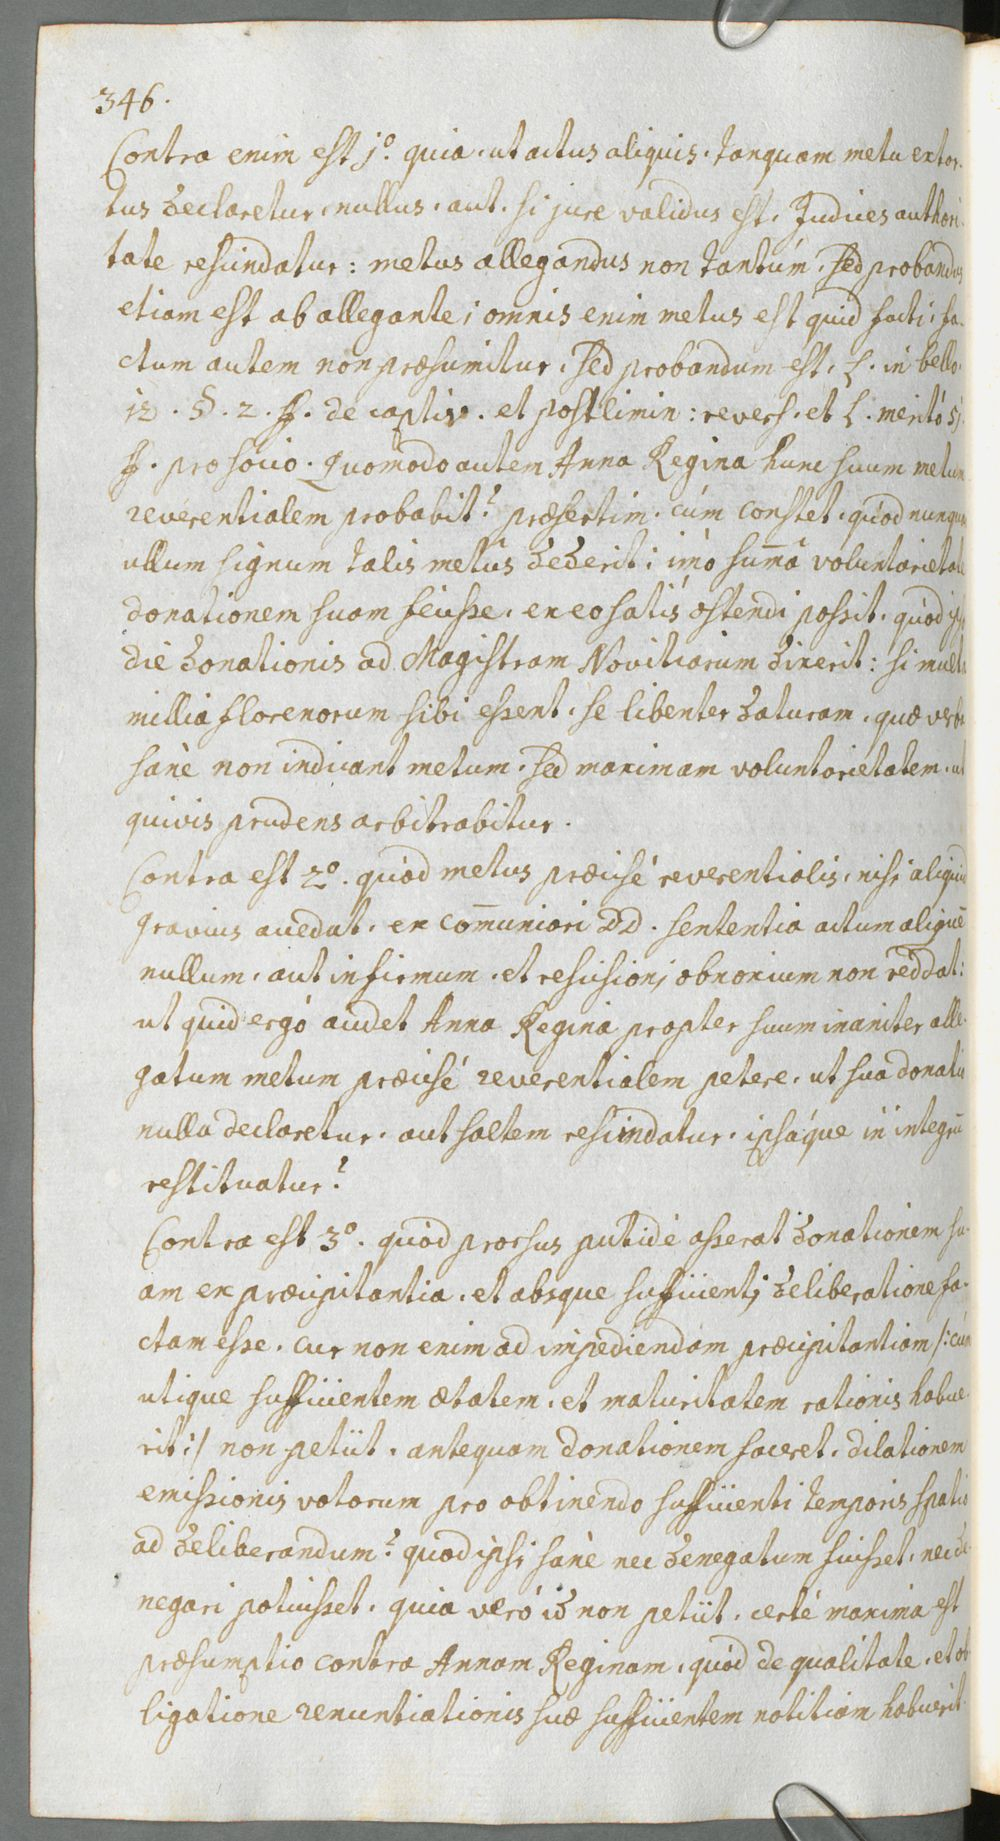 346.
Contra enim est 1º. quia, ut actus aliquis, tanquam metu extor-
tus declaretur nullus, aut, si jure validus est, Judicis authori-
tate rescindatur: metus allegandus non tantùm, sed probandus
etiam est ab allegante; omnis enim metus est quid facti, fa-
ctum autem non præsumitur, sed probandum est, L. in bello.
12. §. 2. ff. de captiv. et postlimin: revers. et L. meritò 51.
ff. pro socio. Quomodo autem Anna Regina hunc suum metum
reverentialem probabit? præsertim, cùm constet, quòd nunquam
ullum signum talis metûs dederit; imò sum̄â voluntarietate
donationem suam fecisse, ex eo satis ostendi possit, quòd ipso
die donationis ad Magistram Novitiarum dixerit: si multa
millia florenorum sibi essent, se libenter daturam, quæ verba
sanè non indicant metum, sed maximam voluntarietatem, ut
quivis prudens arbitrabitur.
Contra est 2º. quòd metus præcisè reverentialis, nisi aliquid
gravius accedat, ex com̄uniori DD. sententia actum aliquē
nullum, aut infirmum, et rescisioni obnoxium non reddat:
ut quid ergò audet Anna Regina propter suum inaniter alle-
gatum metum præcisè reverentialem petere, ut sua donatio
nulla declaretur, aut saltem rescindatur, ipsáque in integrū
restituatur?
Contra est 3º. quòd prorsus putidè asserat donationem su-
am ex præcipitantia, et absque sufficienti deliberatione fa-
ctam esse, cur non enim ad impediendam præcipitantiam /: cùm
utique sufficientem ætatem, et maturitatem rationis habue-
rit :/ non petiit, antequam donationem faceret, dilationem
emissionis votorum pro obtinendo sufficienti temporis spatio
ad deliberandum? quod ipsi sanè nec denegatum fuisset, nec de-
negari potuisset, quia verò id non petiit, certè maxima est
præsumptio contra Annam Reginam, quòd de qualitate, et ob-
ligatione renuntiationis suæ sufficientem notitiam habuerit.